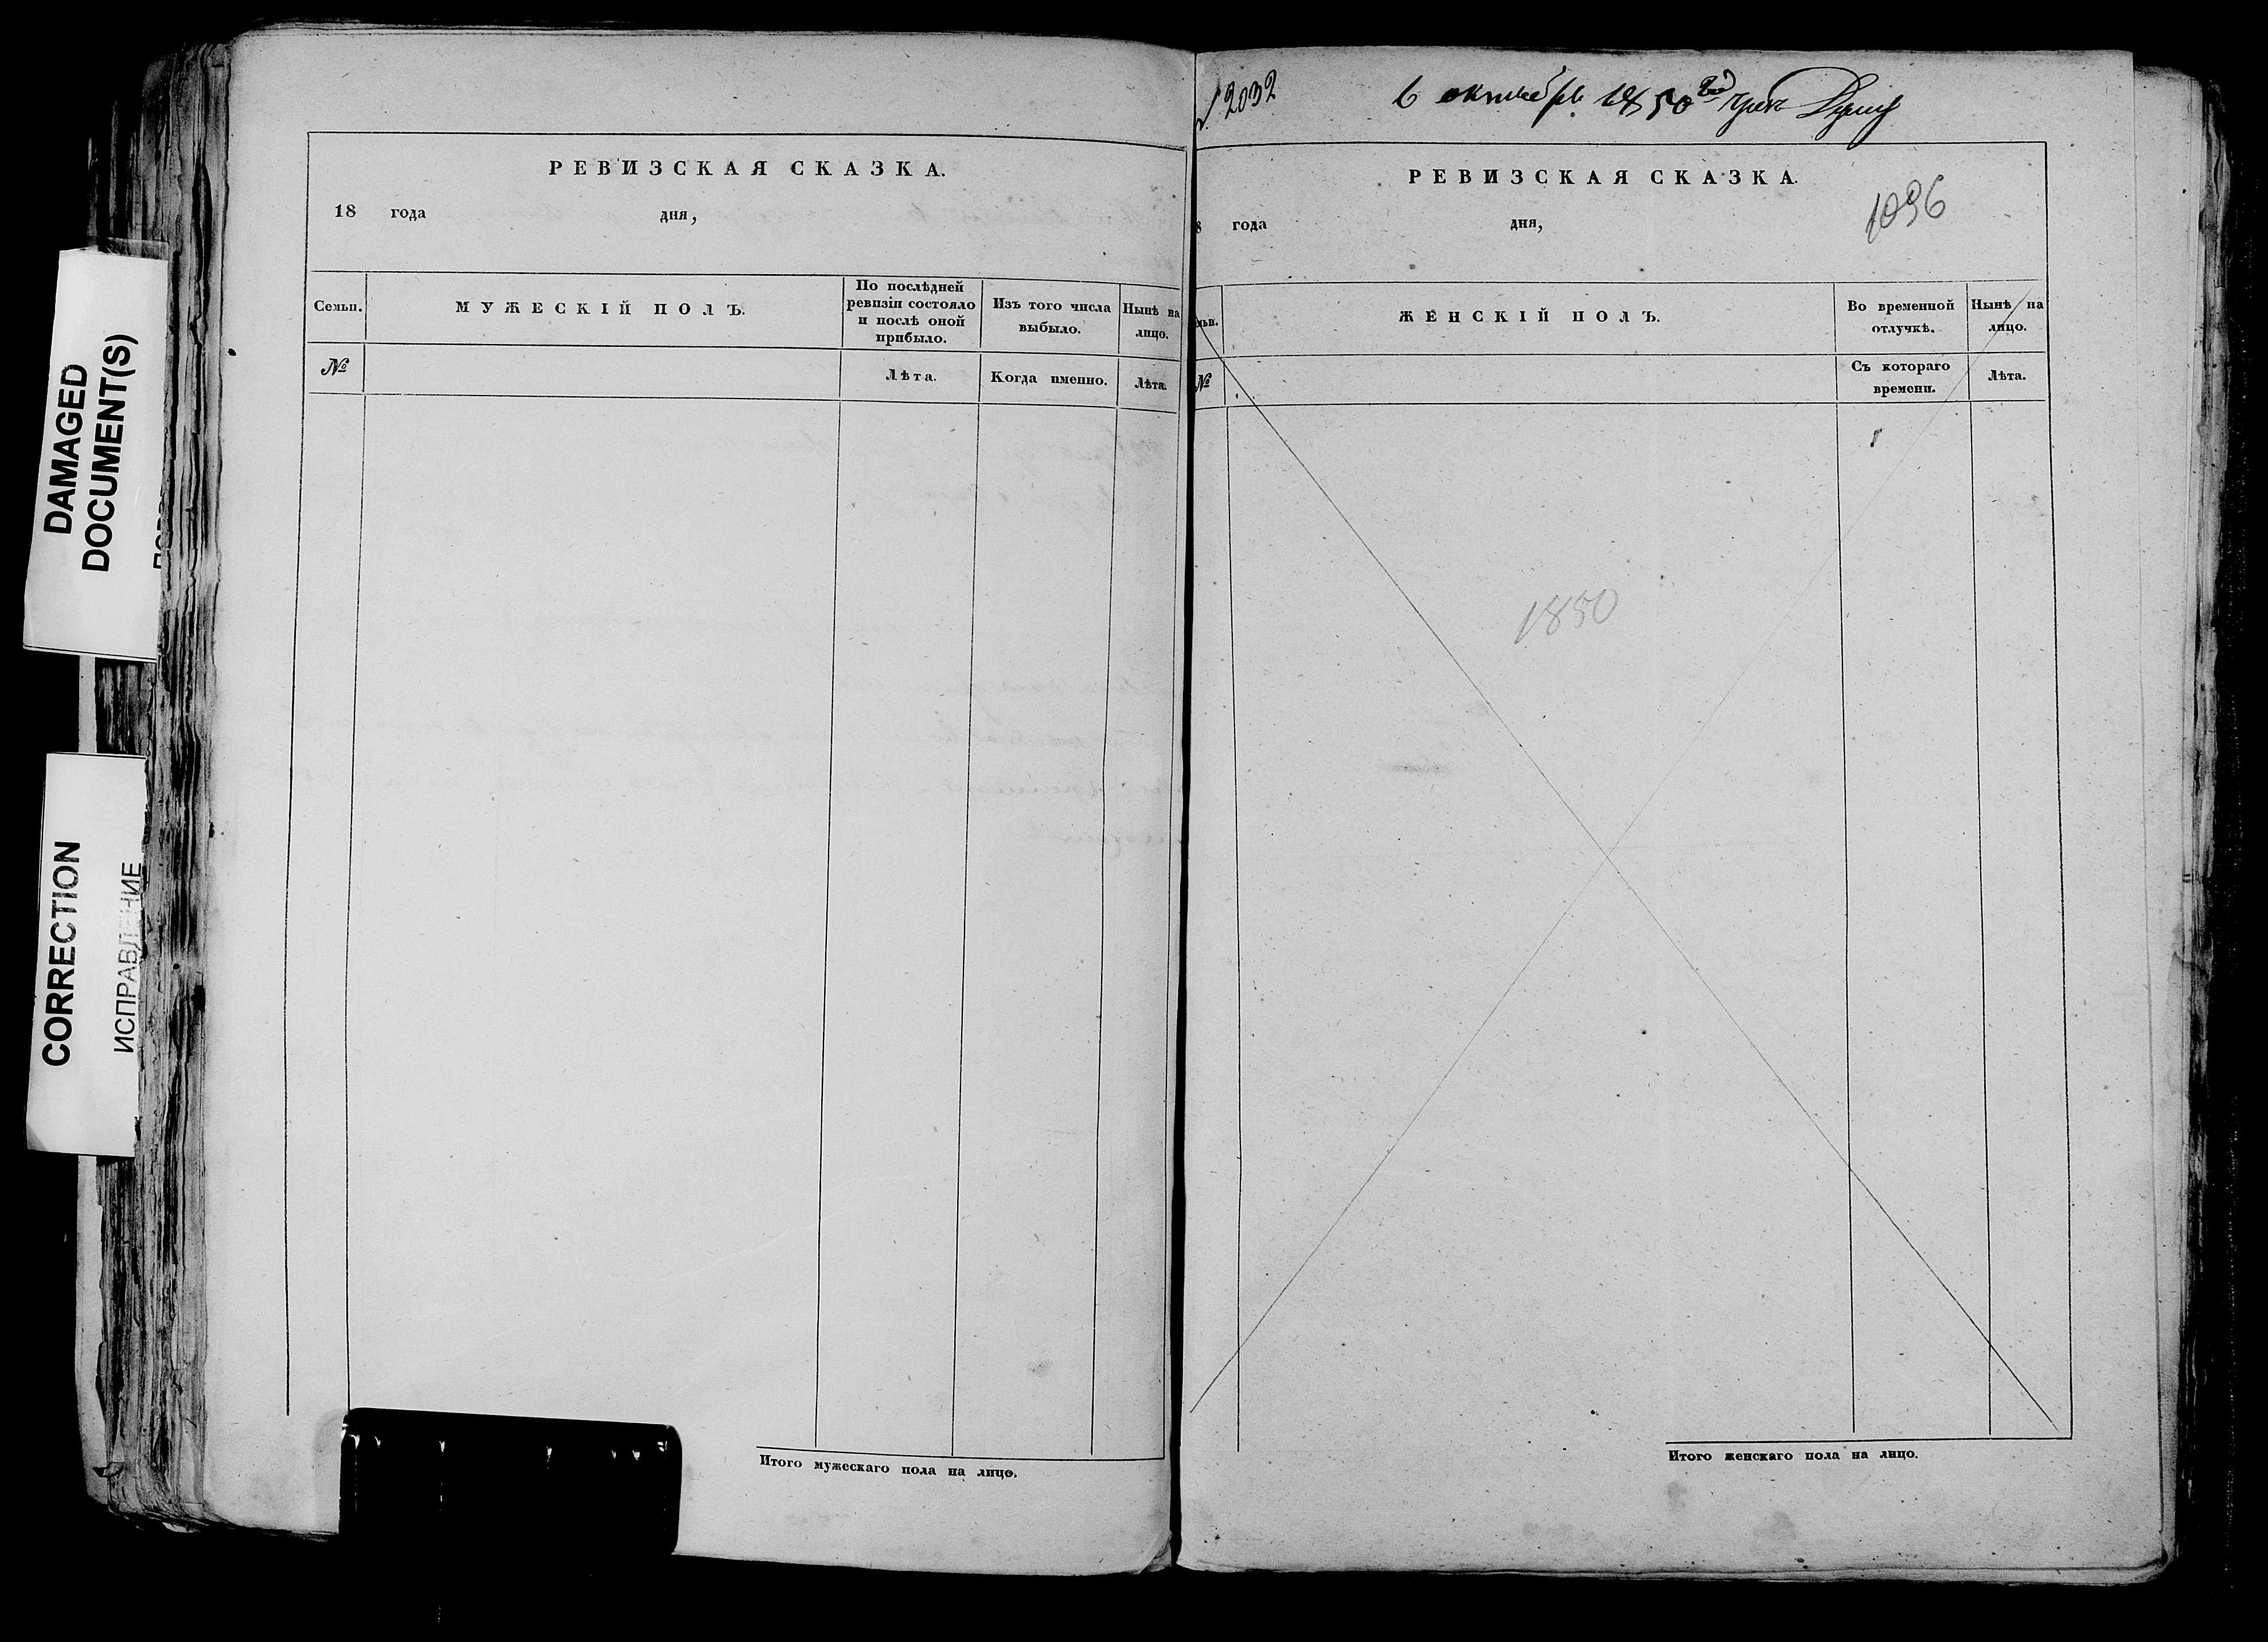 DAMAGED
DOCUMENT(S)
CORRECTION
ИСПРАВЛЕНИЕ
РЕВИЗСКАЯ СКАЗКА.
18 года дня,
Семьи.
МУЖЕСКІЙ ПОЛЪ.
По послѣдней
ревизіи состояло
и послѣ оной
прибыло.
Изъ того числа
выбыло.
Нынѣ на
лицо.
№
Лѣта.
Когда именно.
Лѣта.
Итого мужескаго пола на лицо.
2032
6 октября 1850 года чрезъ Думу
РЕВИЗСКАЯ СКАЗКА.
1096
8 года дня,
мьи.
ЖЕНСКІЙ ПОЛЪ.
Во временной
отлучкѣ.
Нынѣ на
лицо.
№
Съ котораго
времени.
Лѣта.
1850
Итого женскаго пола на лицо.